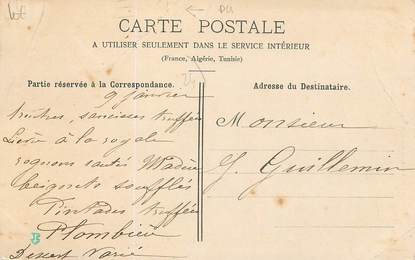 CARTE POSTALE
A UTILISER SEULEMENT DANS LE SERVICE INTÉRIEUR
(France, Algérie, Tunisie)
Partie réservée à la Correspondance.
9 janvier
huitres, saucisses truffées
Lièvre à la royale
rognons sautés Madère
beignets soufflés
Pintades truffées
Plombière
Dessert Varié
Adresse du Destinataire.
Monsieur
J. Guillemin